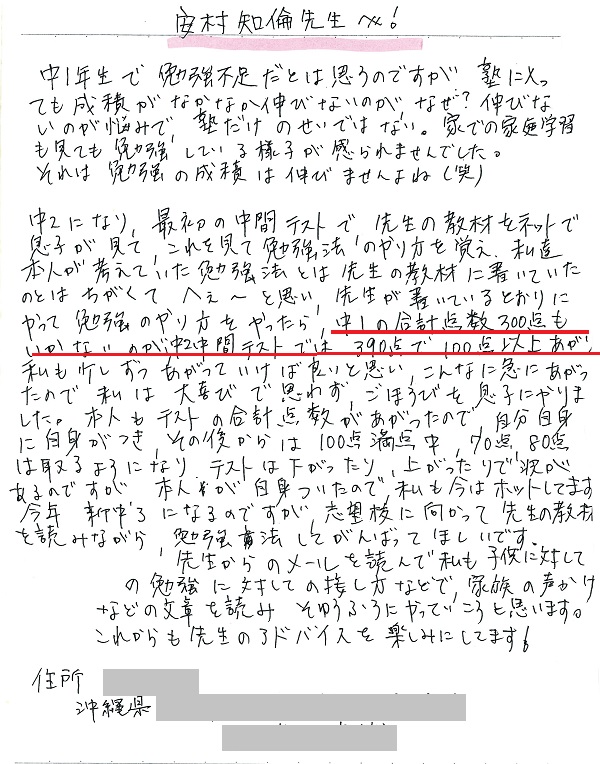 安村知倫先生へ!
中1年生で勉強不足だとは思うのですが 塾に入っ
ても成積がなかなか伸びないのが、なぜ?伸びな
いのが悩みで、塾だけのせいではない。家での家庭学習
も見ても勉強している様子が感られませんでした。
それは勉強の成積は伸びませんよね(笑)
中2になり、最初の中間テストで 先生の教材をネットで
息子が見て、これを見て勉強法のやり方を覚え、私達
本人が考えていた勉強法とは先生の教材に書いていた
のとはちがくて へぇ〜と思い、先生が書いているとおりに
やって勉強のやり方をやったら、中1の合計点数300点も
いかないのが中2中間テストでは 390点で100点以上あがり
私も少しずつあがっていけば良いと思い、こんなに急にあがっ
たので私は大喜びで思わず、ごほうびを息子にやりま
した。本人もテストの合計点数があがったので、自分自身
に自身がつき、その後からは100点満点中、70点 80点
は取るようになり テストは下がったり、上がったりで波が
あるのですが 本人が自身ついたので、私も今はホットしてます
今年 新中3になるのですが、志望校に向かって先生の教材
を読みながら、勉強法してがんばってほしいです。
先生からのメールを読んで私も子供に対して
の勉強に対しての接し方などで、家族の声かけ
などの文章を読み そゆうふうにやっていこうと思います。
これからも先生のアドバイスを楽しみにしてます!
住所
沖縄県